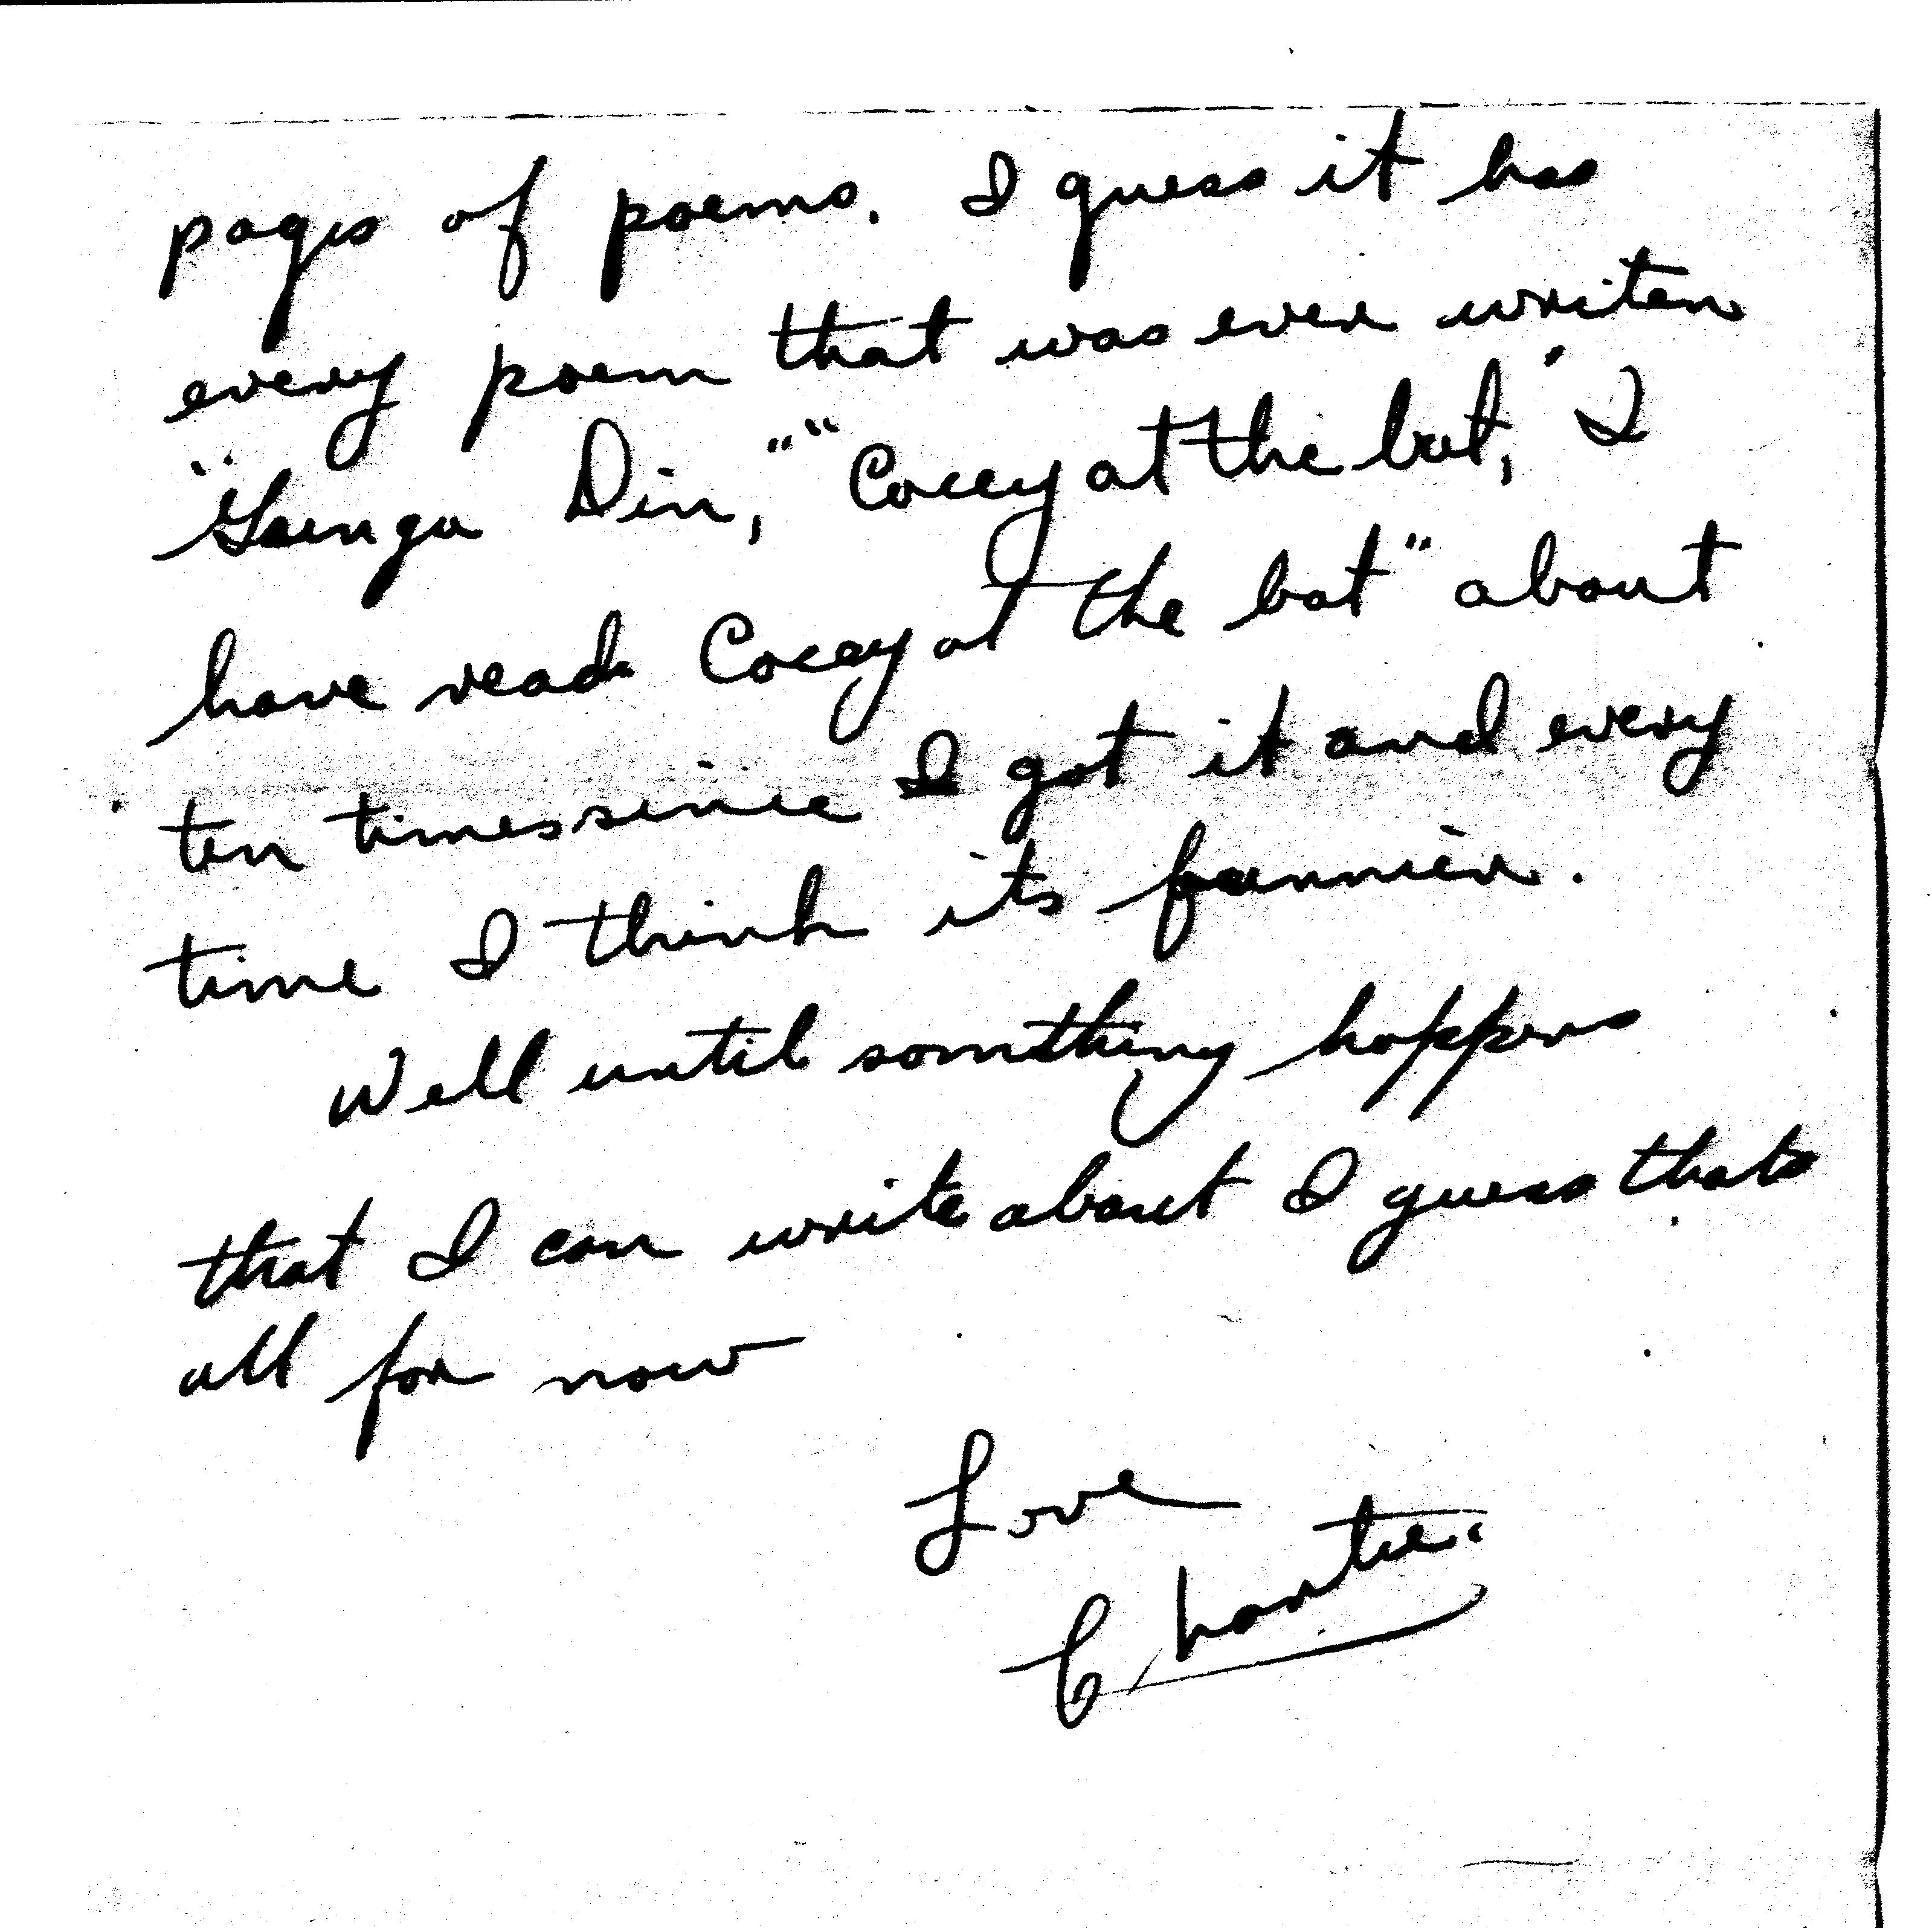 pages of poems. I guess it has
every poem that was ever writen
"Gunga Din," "Cocey at the bat," I
have read Cocey at the bat" about
ten times since I got it and every
time I think its funnier.
Well until somthing happens
that I can write about I guess thats
all for now
Love